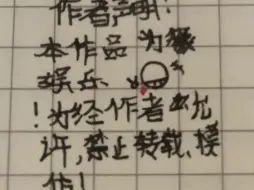 作者声明：
本作品为
娱乐
！为经作者允
许，禁止转载、模
作！